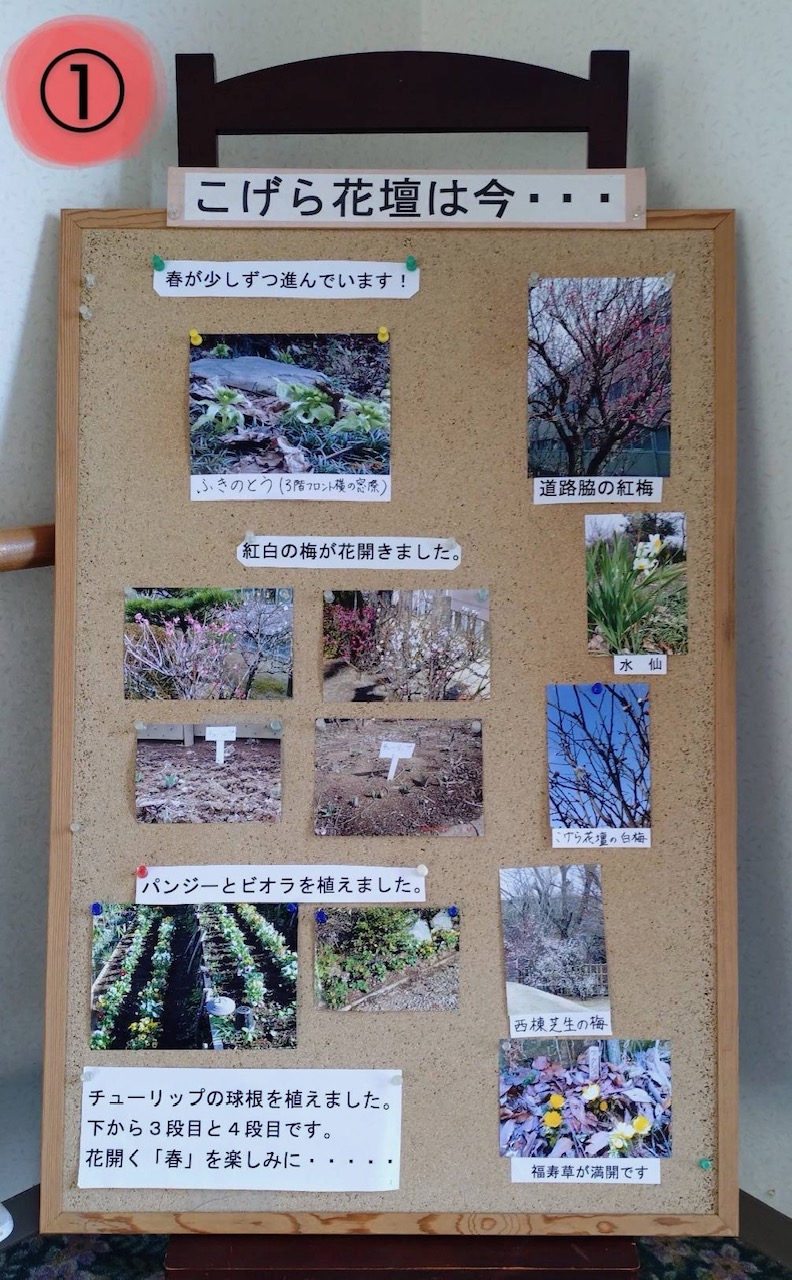 ①
こげら花壇は今・・・
春が少しずつ進んでいます！
ふきのとう(3階フロント横の窓際)
道路脇の紅梅
紅白の梅が花開きました。
水 仙
こげら花壇の白梅
パンジーとビオラを植えました。
西棟芝生の梅
チューリップの球根を植えました。
下から３段目と４段目です。
花開く「春」を楽しみに・・・・・
福寿草が満開です